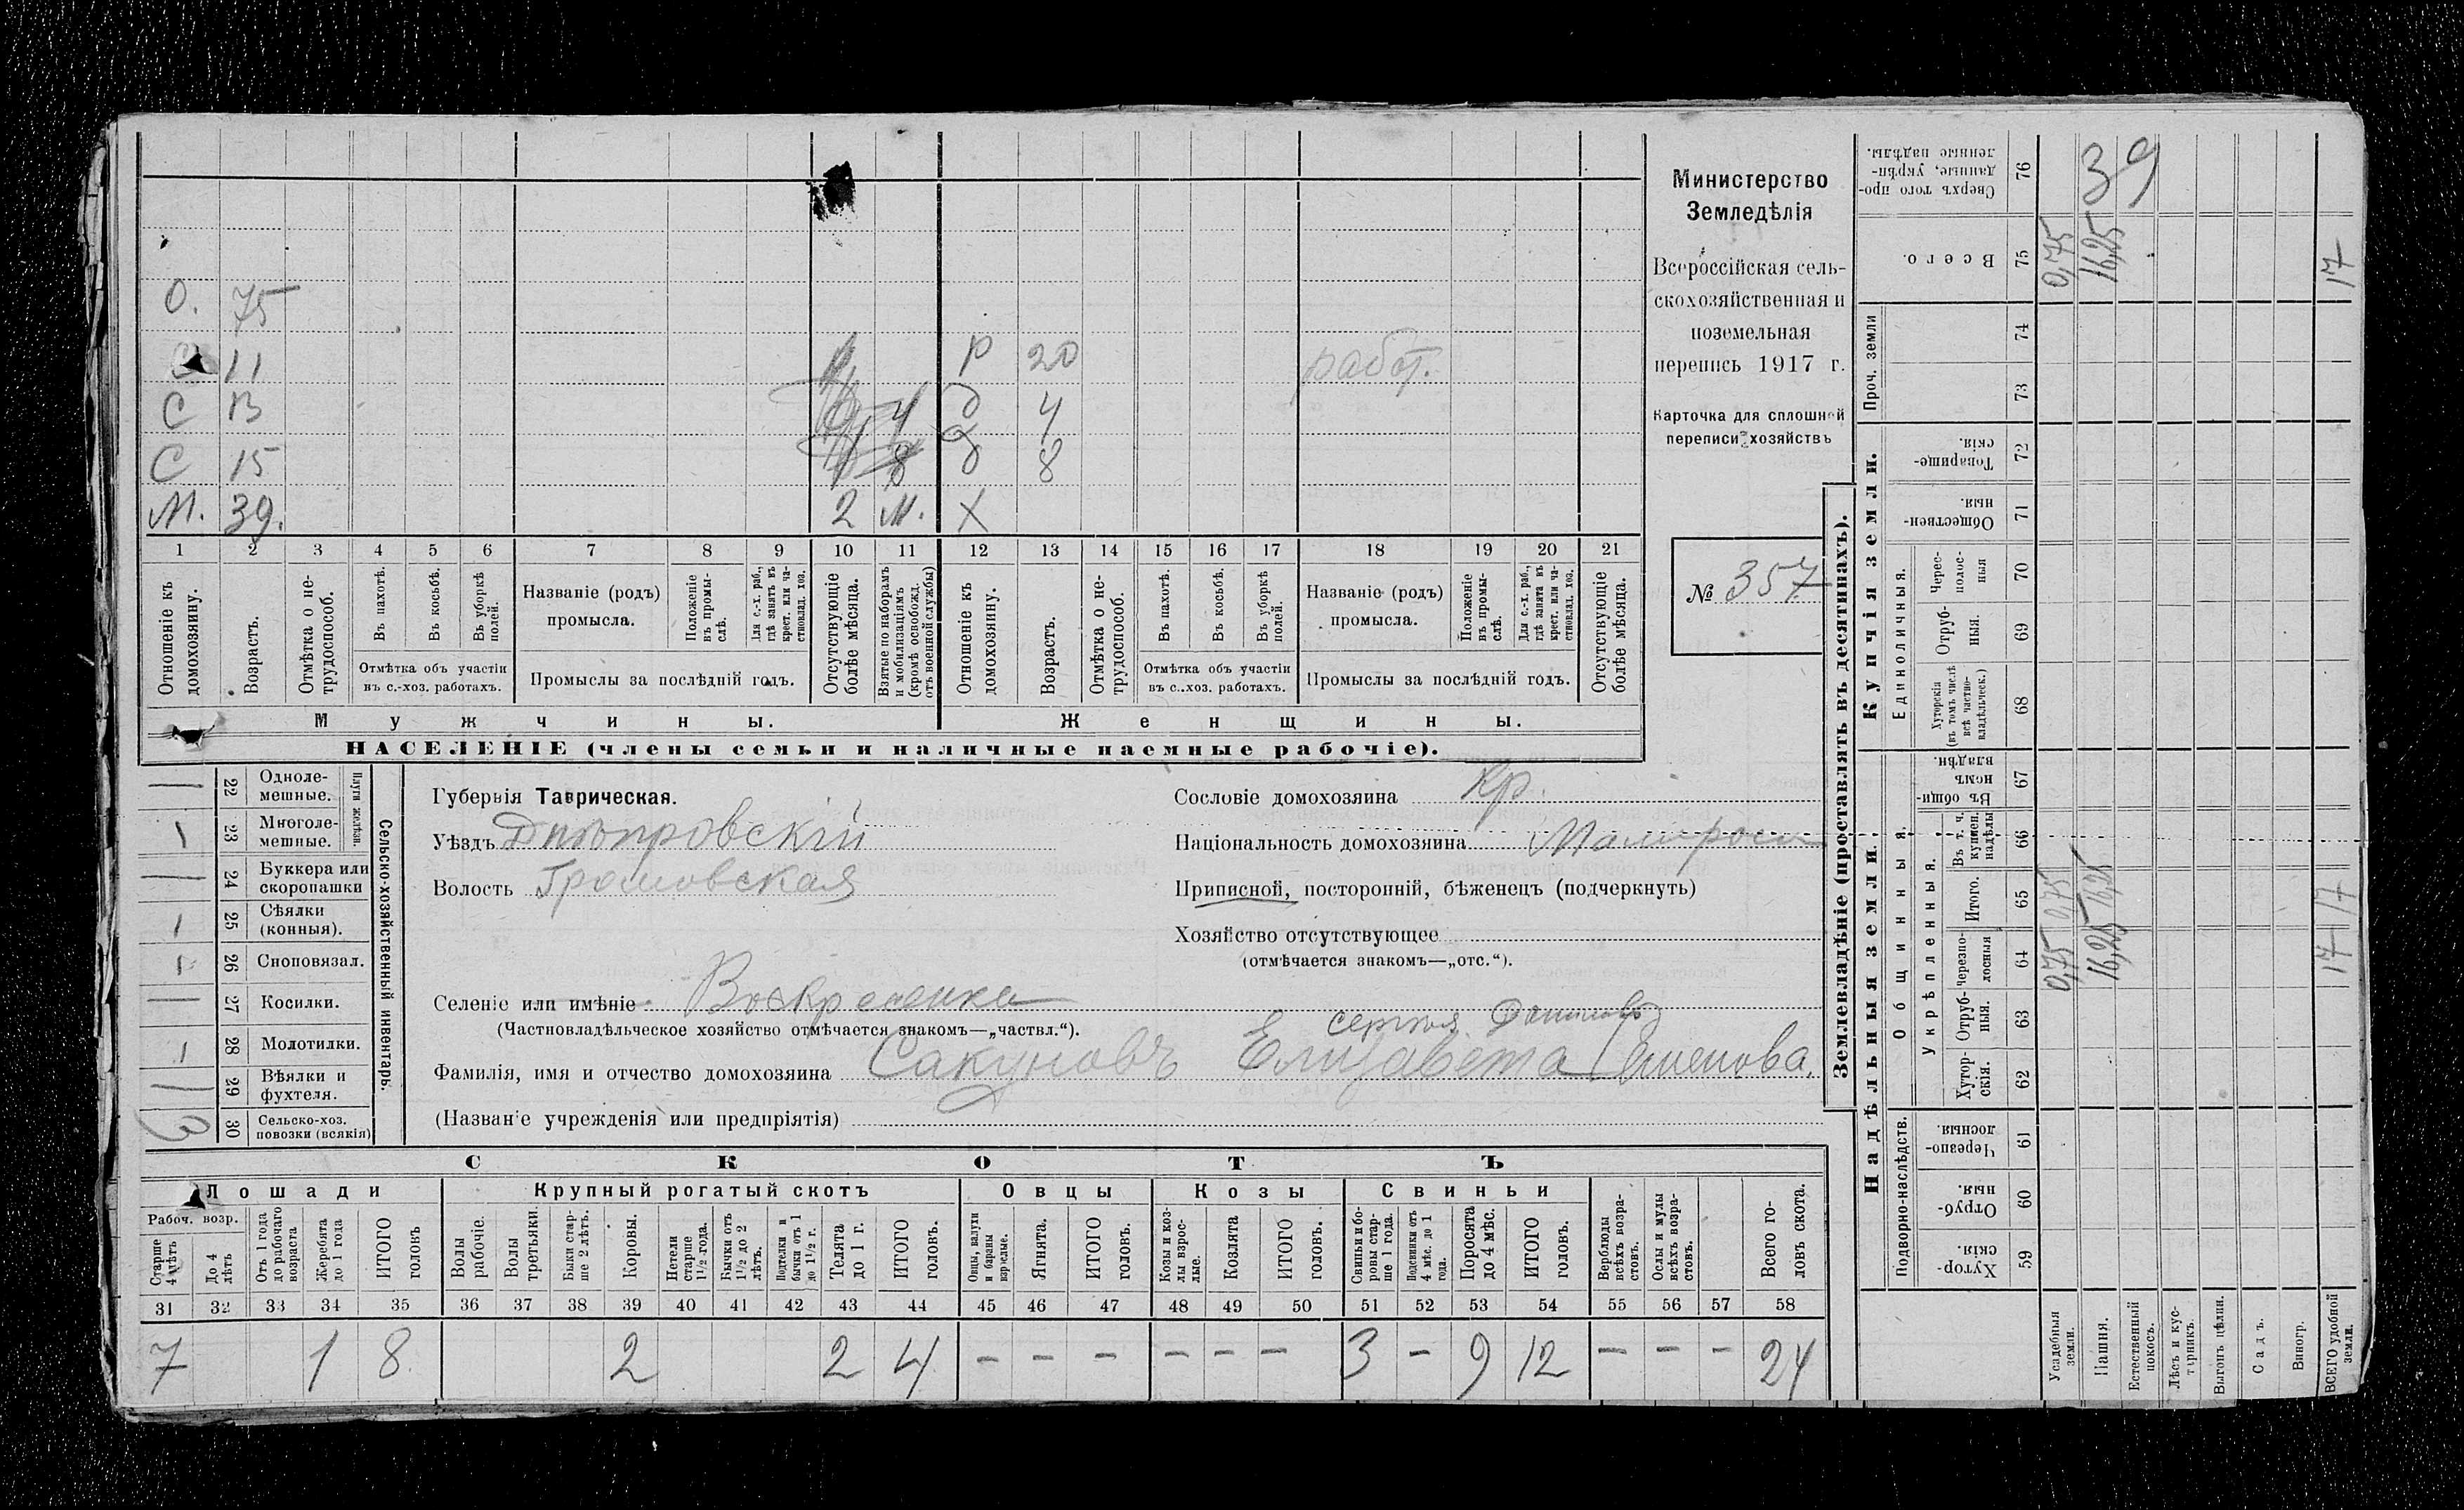 О. 75
11 Р 20 работ.
С 13 д 4
С 15 8 д 8
М. 39. 2 М. Х
1 2 3 4 5 6 7 8 9 10 11 12 13 14 15 16 17 18 19 20 21
Отношеніе къ домохозяину.
Возрастъ.
Отмѣтка о нетрудоспособ.
Въ пахотѣ.
Въ косьбѣ.
Въ уборкѣ полей.
Отмѣтка объ участіи въ с.-хоз. работахъ.
Названіе (родъ) промысла.
Положеніе въ промыслѣ.
Для с.-х. раб., гдѣ занятъ въ крест. или частновлад. хоз.
Промыслы за послѣдній годъ.
Отсутствующіе болѣе мѣсяца.
Взятые по наборамъ и мобилизаціямъ (кромѣ освобожд. отъ военной службы)
Отношеніе къ домохозяину.
Возрастъ.
Отмѣтка о нетрудоспособ.
Въ пахотѣ.
Въ косьбѣ.
Въ уборкѣ полей.
Отмѣтка объ участіи въ с.-хоз. работахъ.
Названіе (родъ) промысла.
Положеніе въ промыслѣ.
Для с.-х. раб., гдѣ занята въ крест. или частновлад. хоз.
Промыслы за послѣдній годъ.
Отсутствующіе болѣе мѣсяца.
Мужчины. Женщины.
НАСЕЛЕНІЕ (члены семьи и наличные наемные рабочіе).
Министерство
Земледѣлія
Всероссійская сель-
скохозяйственная и
поземельная
перепись 1917 г.
Карточка для сплошной
переписи хозяйствъ
№ 357
Сельско-хозяйственный инвентарь.
Плуги желѣзн.
22 Одноле-мешные. —
23 Многоле-мешные. 1
24 Буккера или скоропашки —
25 Сѣялки (конныя). 1
26 Сноповязал. 1
27 Косилки. —
28 Молотилки. 1
29 Вѣялки и фухтеля. —
30 Сельско-хоз. повозки (всякія) 3
Губернія Таврическая.
Уѣздъ Днѣпровскій
Волость Громовская
Селеніе или имѣніе Воскресенка
(Частновладѣльческое хозяйство отмѣчается знакомъ—„частвл.“).
Сословіе домохозяина Кр.
Національность домохозяина Малоросъ
Приписной, посторонній, бѣженецъ (подчеркнуть)
Хозяйство отсутствующее
(отмѣчается знакомъ—„отс.“).
Фамилія, имя и отчество домохозяина Сакуновъ Елизавета Семенова.
(Названіе учрежденія или предпріятія)
СКОТЪ
Лошади Крупный рогатый скотъ Овцы Козы Свиньи
Рабоч. возр.
Старше 4 лѣтъ
До 4 лѣтъ
Отъ 1 года до рабочаго возраста
Жеребята до 1 года
ИТОГО головъ
Волы рабочіе.
Волы третьяки.
Быки старше 2 лѣтъ.
Коровы.
Нетели старше 1 1/2 года.
Бычки отъ 1 1/2 до 2 лѣтъ.
Подтелки и бычки отъ 1 до 1 1/2 г.
Телята до 1 г.
ИТОГО головъ.
Овцы, валухи и бараны взрослые.
Ягнята.
ИТОГО головъ.
Козы и козлы взрослые.
Козлята
ИТОГО головъ.
Свиньи и боровы старше 1 года.
Подсвинки отъ 4 мѣс. до 1 года.
Поросята до 4 мѣс.
ИТОГО головъ.
Верблюды всѣхъ возрастовъ.
Ослы и мулы всѣхъ возрастовъ.
Всего головъ скота.
31 32 33 34 35 36 37 38 39 40 41 42 43 44 45 46 47 48 49 50 51 52 53 54 55 56 57 58
7 1 8 2 2 4 — — — — — — 3 — 9 12 — — — 24
Землевладѣніе (проставлять въ десятинахъ).
Надѣльныя земли. Купчія земли. Проч. земли
Подворно-наслѣдств.
Общинныя.
Укрѣпленныя.
Единоличныя.
Сверхъ того проданные, укрѣпленные надѣлы. 76 39
Всего. 75 0,75 16,25 17
74
73
Товарищескія. 72
Общественныя. 71
Чересполосныя 70
Отрубныя. 69
Хуторскія (въ томъ числѣ всѣ частновладѣльческ.) 68
Въ общинномъ владѣн. 67
Въ т. ч. куплен. надѣлы 66
Итого. 65 0,75 16,25 17
Черезполосныя 64 0,75 16,25 17
Отрубныя. 63
Хуторскія. 62
Черезполосныя 61
Отрубныя. 60
Хуторскія. 59
Усадебныя земли.
Пашня.
Естественный покосъ.
Лѣсъ и кустарникъ.
Выгонъ цѣлин.
Садъ.
Виногр.
ВСЕГО удобной земли.